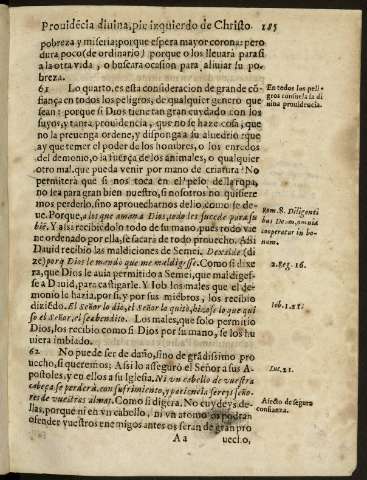 Prouidẽcia diuina, pie izquierdo de Christo. 185
pobreza y miseria; porque espera mayor corona: pero
dura poco (de ordinario) porque o los lleuarà para si
a la otra vida, o buscara ocasion para aliuiar su po-
breza.
61 Lo quarto, es esta consideracion de grande cõ-
fiança en todos los peligros, de qualquier genero que
sean: porque si Dios tiene tan gran cuydado con los
suyos, y tanta prouidencia, que no se haze cosa, que
no la preuenga ordene, y disponga a su aluedrio: que
ay que temer el poder de los hombres, o los enredos
del demonio, o la fuerça de los animales, o qualquier
otro mal, que pueda venir por mano de criatura? No
permitira que si nos toca en el pelo de la ropa,
no sea para gran bien nuestro, si nosotros no quisiere
mos perderlo, sino aprouecharnos dello, como se de-
ue. Porque, a los que aman a Dios, todo les sucede para su
biẽ. Y assi recibiẽdolo todo de su mano, pues todo vie
ne ordenado por ella, se sacara de todo prouecho. Assi
Dauid recibio las maldiciones de Semei. Dexalde (di
ze) porq̃ Dios le mando que me maldigesse. Como si dixe
ra, que Dios le auia permitido a Semei, que maldiges-
se a Dauid, para castigarle. Y Iob los males que el de-
monio le hazia, por si, y por sus miẽbros, los recibio
diziẽdo. El señor lo dio, el Señor lo quitò, hizose lo que qui
so el Señor, el sea bendito. Los males, que solo permitio
Dios, los recibio como si Dios por su mano, se los hu
uiera imbiado.
62 No puede ser de daño, sino de grãdissimo pro
uecho, si queremos; Assi lo asseguró el Señor a sus A-
postoles, y en ellos a su Iglesia. Ni vn cabello de vuestra
cabeça se perderà, con sufrimiento, y paciencia sereys seño-
res de vuestras almas. Como si digera. No cuydeys de-
llas, porque ni en vn cabello, ni vn atomo os podran
ofender vuestros enemigos antes os seran de gran pro
A a uecho,
En todos los peli-
gros consuela la di
uina prouidencia.
Rom. 8. Diligenti
bus Deum, omnia
cooperantur in bo-
num.
2. Reg. 16.
Iob. 1. 21.
Luc. 21.
Afecto de segura
confiança.